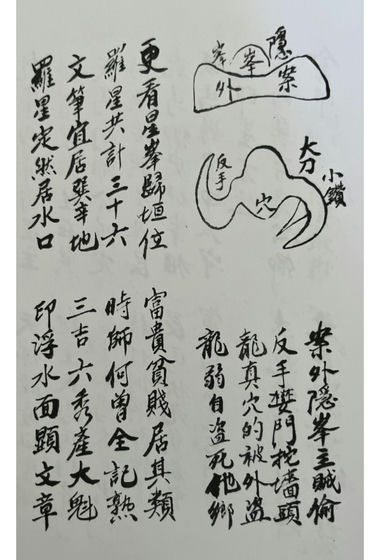 隱
峯
峯
案
外
大刀
小鑽
反手
穴
案外隱峯主賊偷
反手門墻頭
龍真穴的被外盜
龍弱自盜死他鄉
更看星峯歸垣位 富貴貧賤居其類
羅星共計三十六 時師何曾全記熟
文筆宜居巽辛地 三吉六秀產大魁
羅星定然居水口 印浮水面顯文章